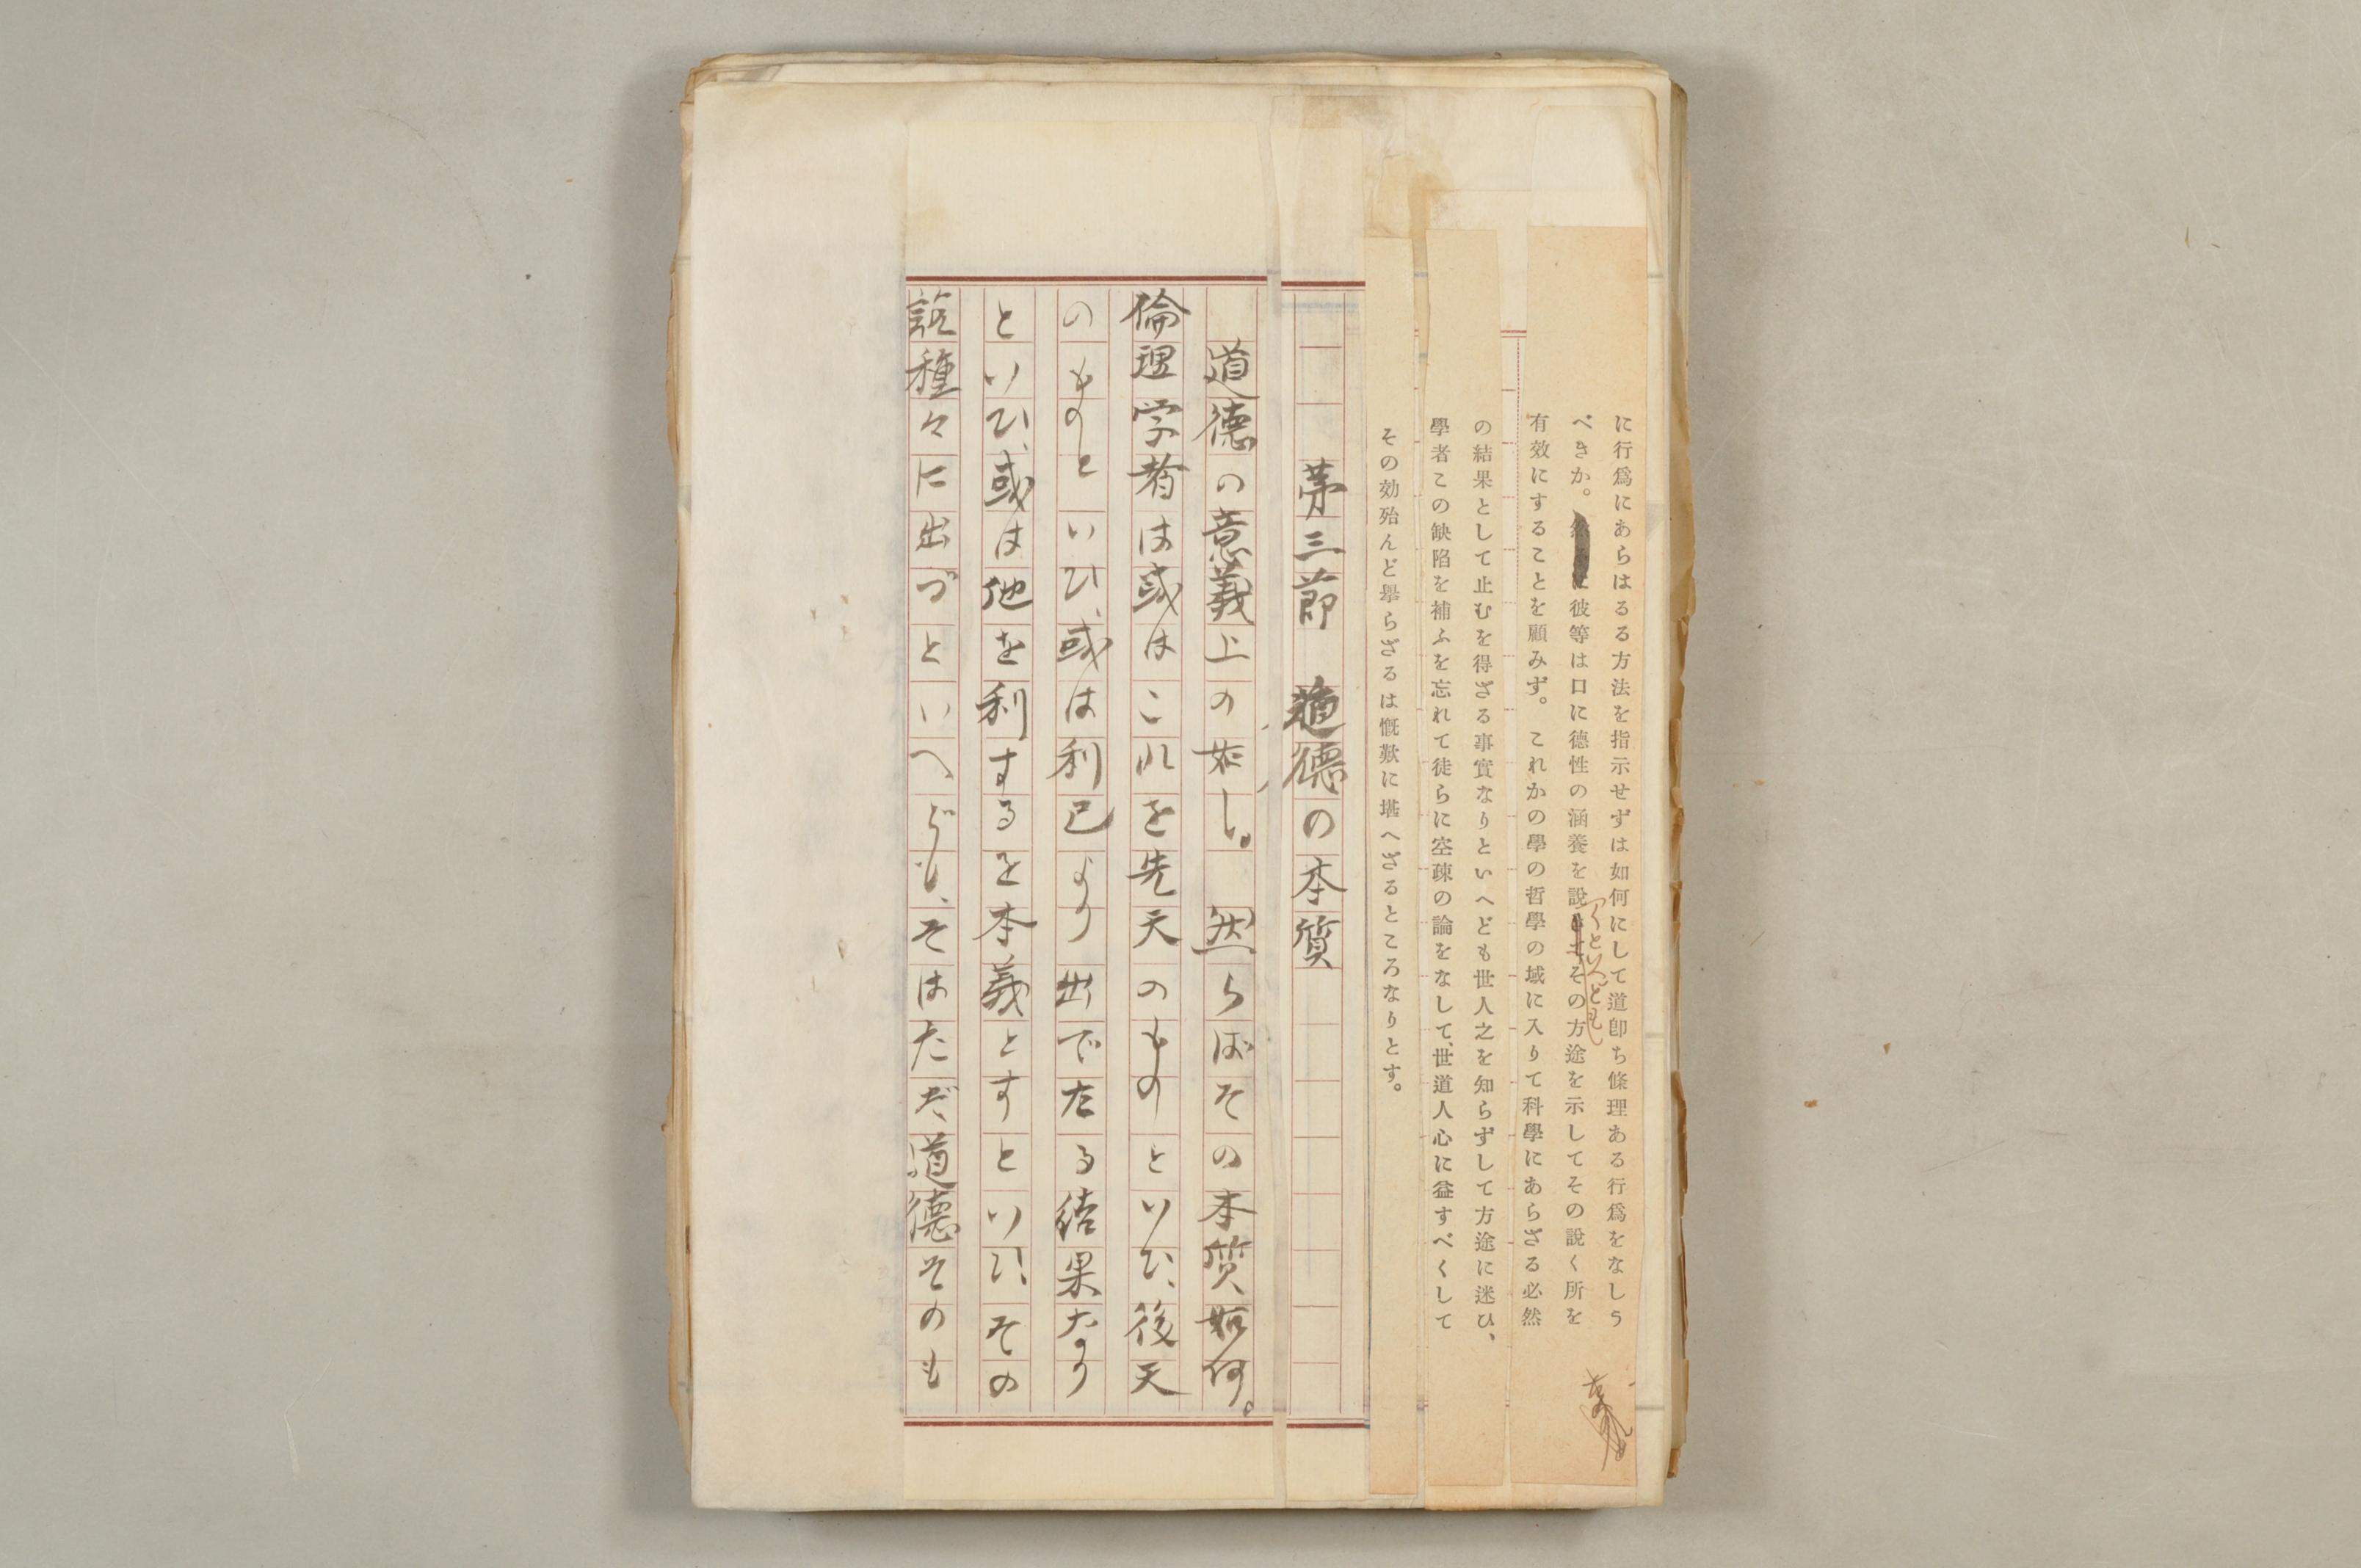 に行爲にあらはるる方法を指示せずは如何にして道卽ち條理ある行爲をなしう
べきか。彼等は口に德性の涵養を說くといへどもその方途を示してその說く所を
有效にすることを顧みず。これかの學の哲學の域に入りて科學にあらざる必然
の結果として止むを得ざる事實なりといへども世人之を知らずして方途に迷ひ、
學者この缺陷を補ふを忘れて徒らに空疎の論をなして、世道人心に益すべくして
その効殆んど擧らざるは慨歎に堪へざるところなりとす。
第三節 道德の本質
道德の意義上の如し。然らばその本質如何。
倫理学者は或はこれを先天のものといひ、後天
のものといひ、或は利己より出でたる結果なり
といひ、或は他を利するを本義とすといひ、その
説種々に出づといへども、そはただ道德そのも